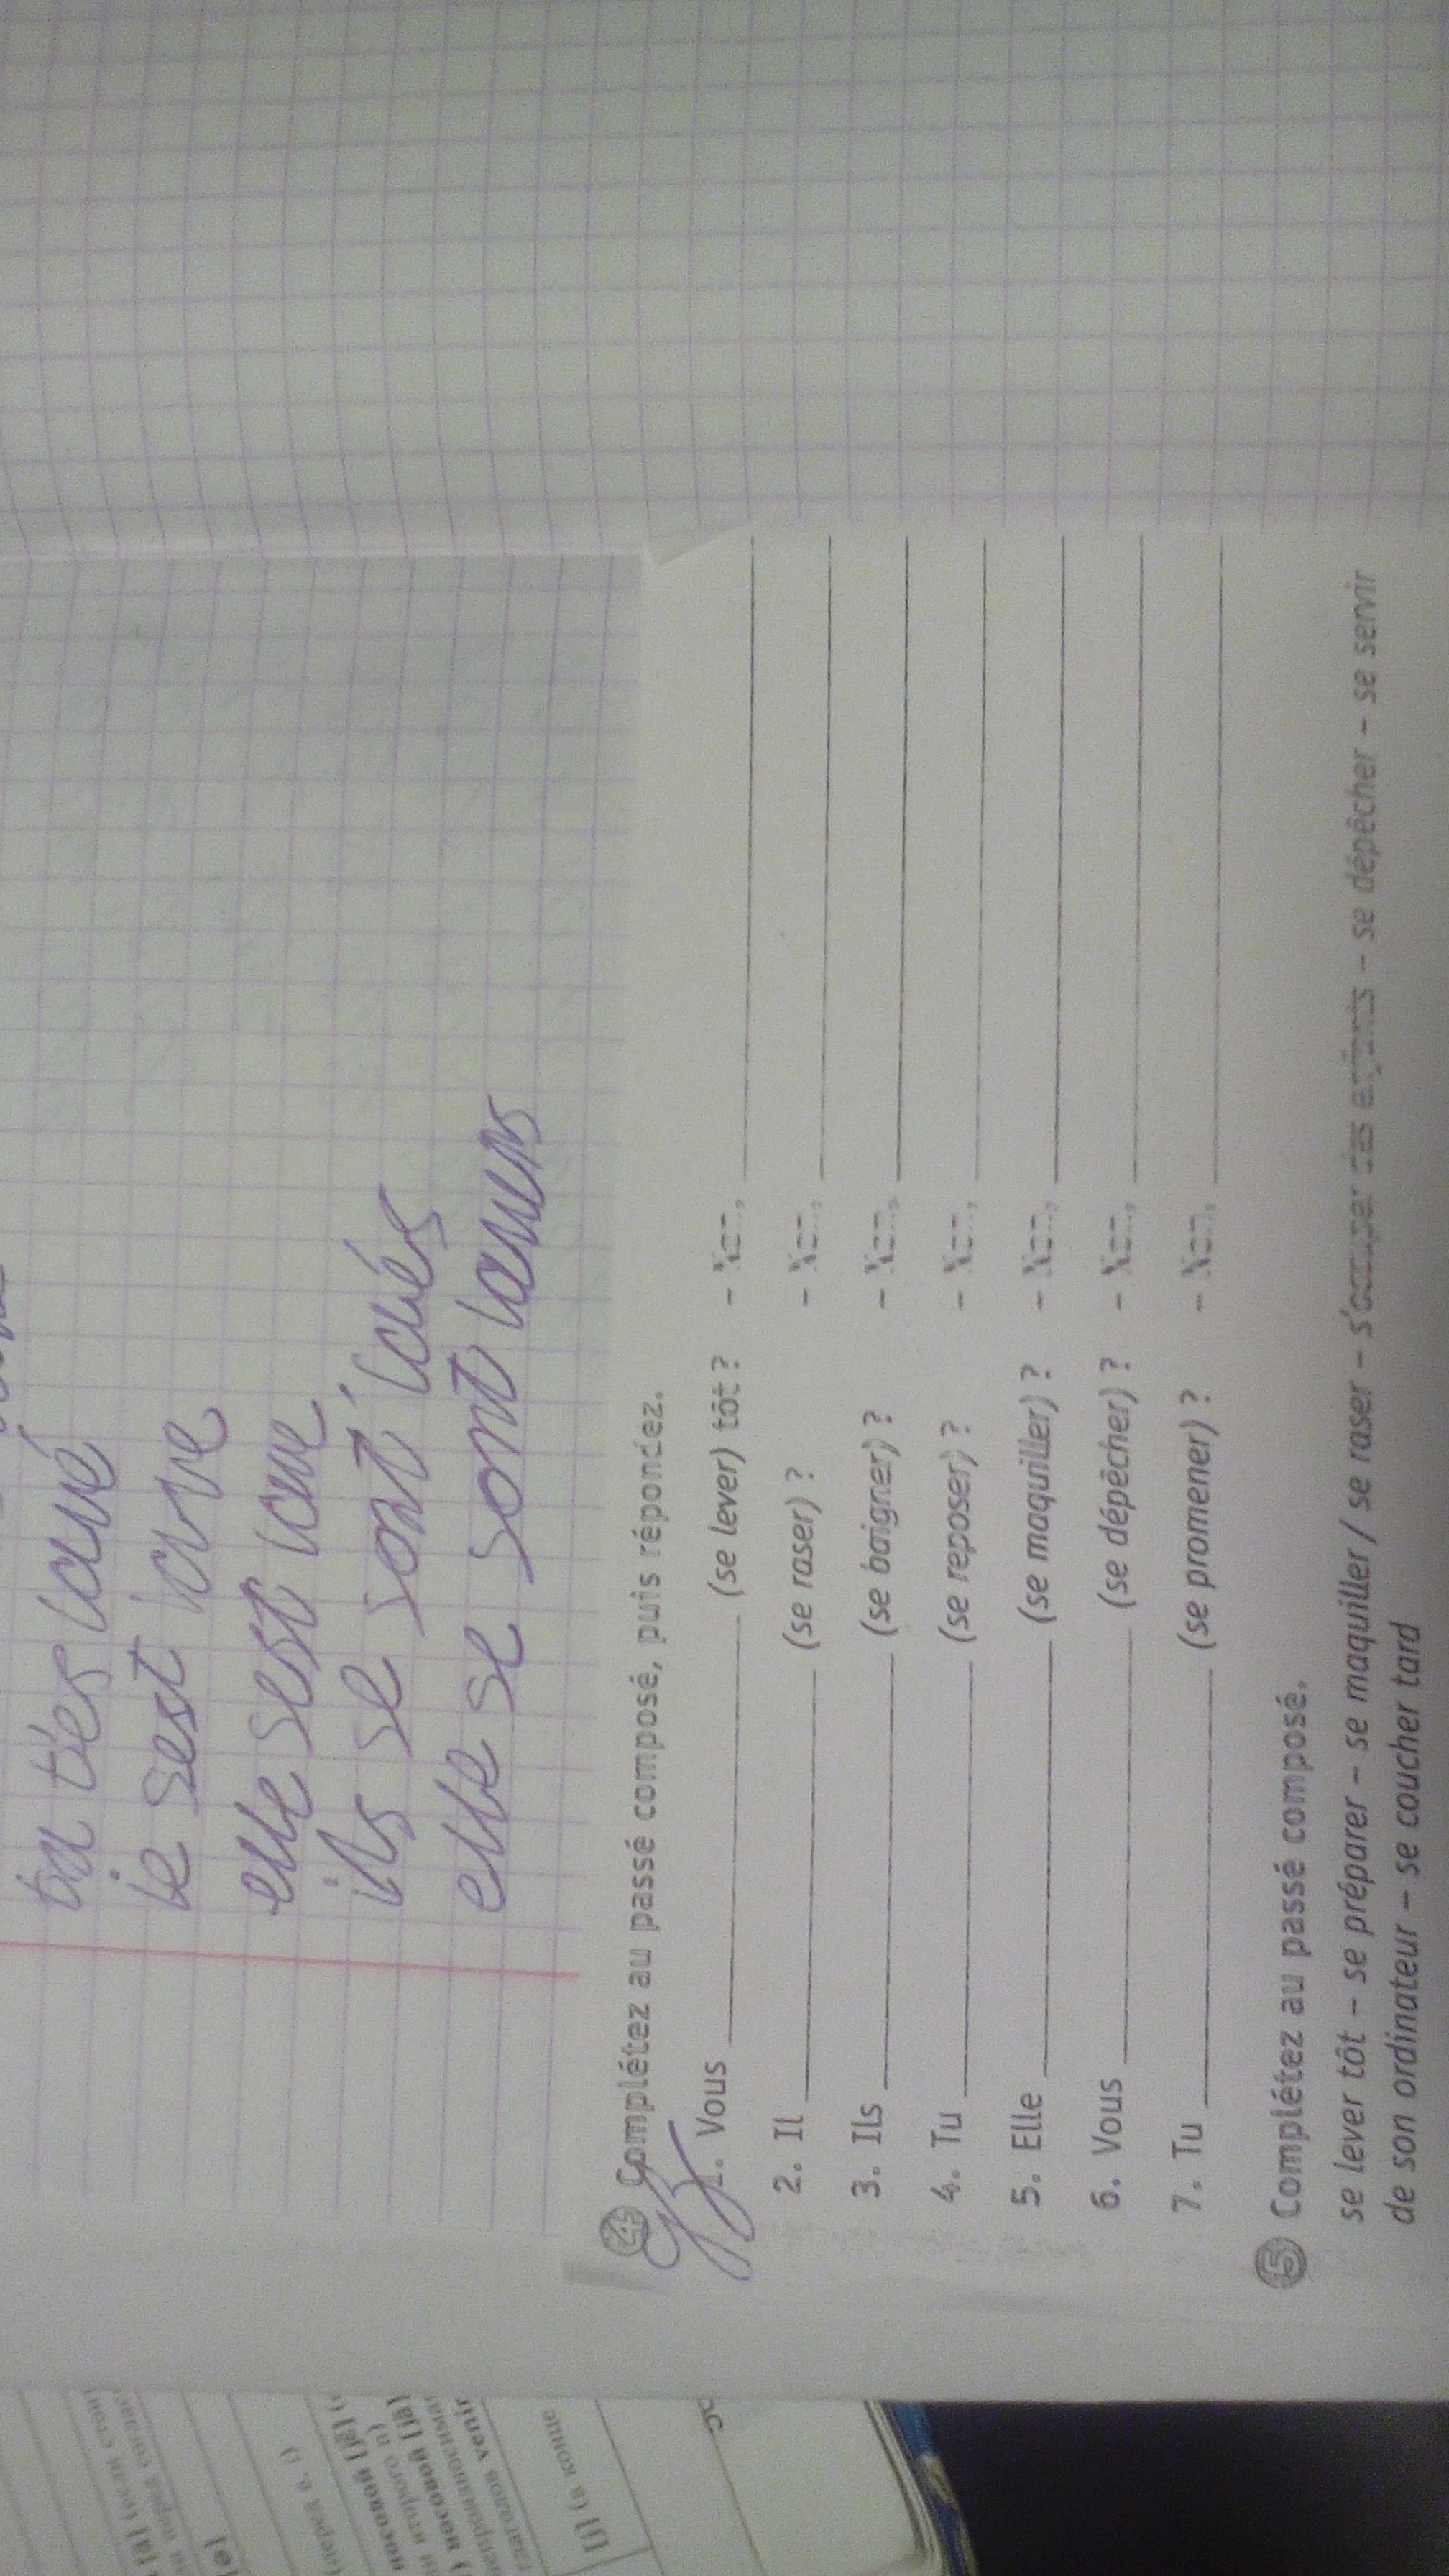 tu t'es lavé
ie sest lave
elle sest lave
ils se sont lavés
elle se sont laveés
4 Complétez au passé composé, puis répondez.
1. Vous (se lever) tôt ? – Non,
2. Il (se raser) ? – Non,
3. Ils (se baigner) ? – Non,
4. Tu (se reposer) ? – Non,
5. Elle (se maquiller) ? – Non,
6. Vous (se dépêcher) ? – Non,
7. Tu (se promener) ? – Non,
5 Complétez au passé composé.
se lever tôt – se préparer – se maquiller / se raser – s'occuper des enfants – se dépêcher – se servir
de son ordinateur – se coucher tard
[j] (в конце